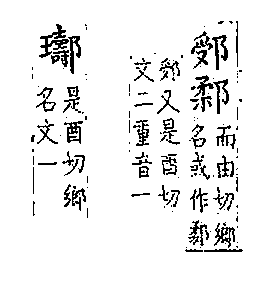 而由切鄉
名或作
又是酉切
文二重音一
是酉切鄉
名文一